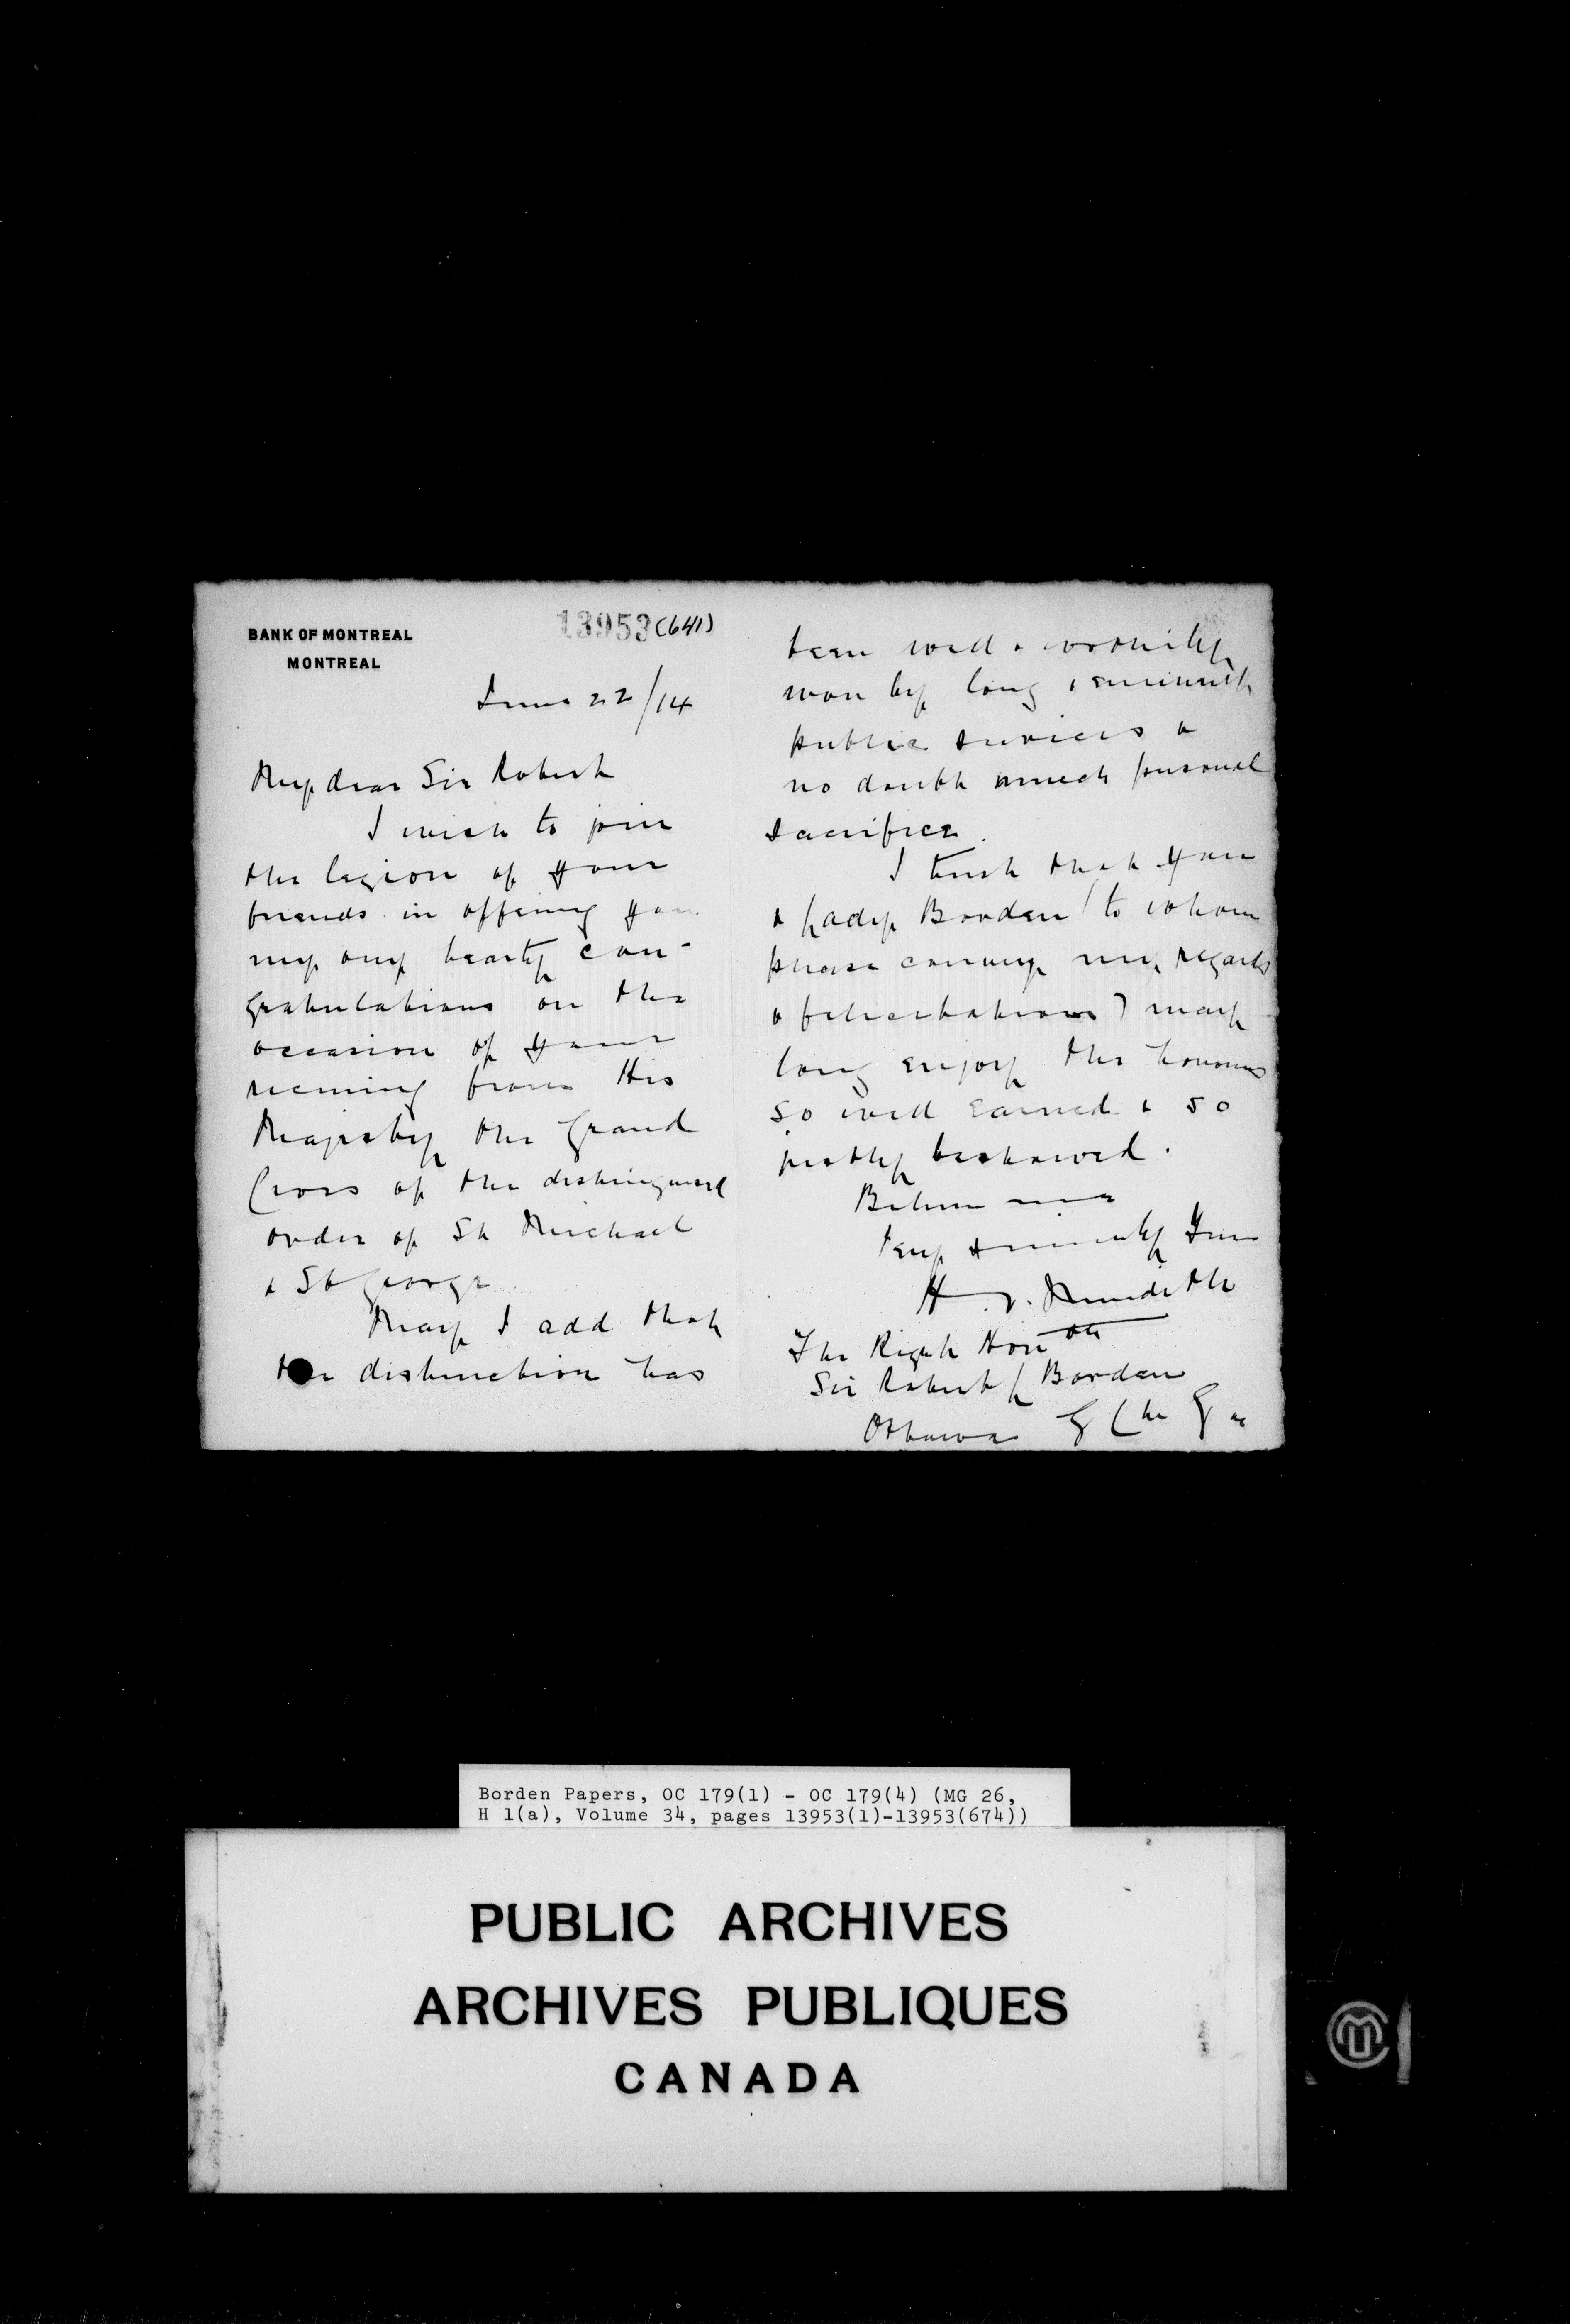 BANK OF MONTREAL
MONTREAL
13953(641)
June 22/14
My dear Sir Robert
I wish to join
the legion of your
friends in offering you
my very hearty con-
gratulations on the
occasion of your
receiving from His
Majesty the Grand
Cross of the distinguished
order of St Michael
& St George
May I add that
the distinction has
been well & worthily
won by long & eminent
public services &
no doubt much personal
sacrifice.
I trust that you
& Lady Borden (to whom
please convey my regards
& felicitations) may
long enjoy the honours
so well earned & so
justly bestowed.
Believe me
Very sincerely Yours
H. V. Meredith
The Right Honble
Sir Robert L Borden
Ottawa G C M G
Borden Papers, OC 179(1) - OC 179(4) (MG 26,
H 1(a), Volume 34, pages 13953(1)-13953(674))
PUBLIC ARCHIVES
ARCHIVES PUBLIQUES
CANADA